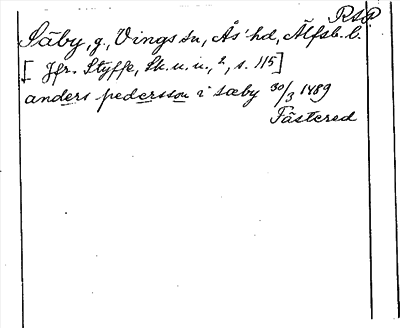 RAp
Säby, g., Vings sn, Ås' hd, Älfsb. l.
[Jfr. Styffe, Sk. u. u., 2, s. 115]
anders pedersson i sæby 30/3 1489
Fästered